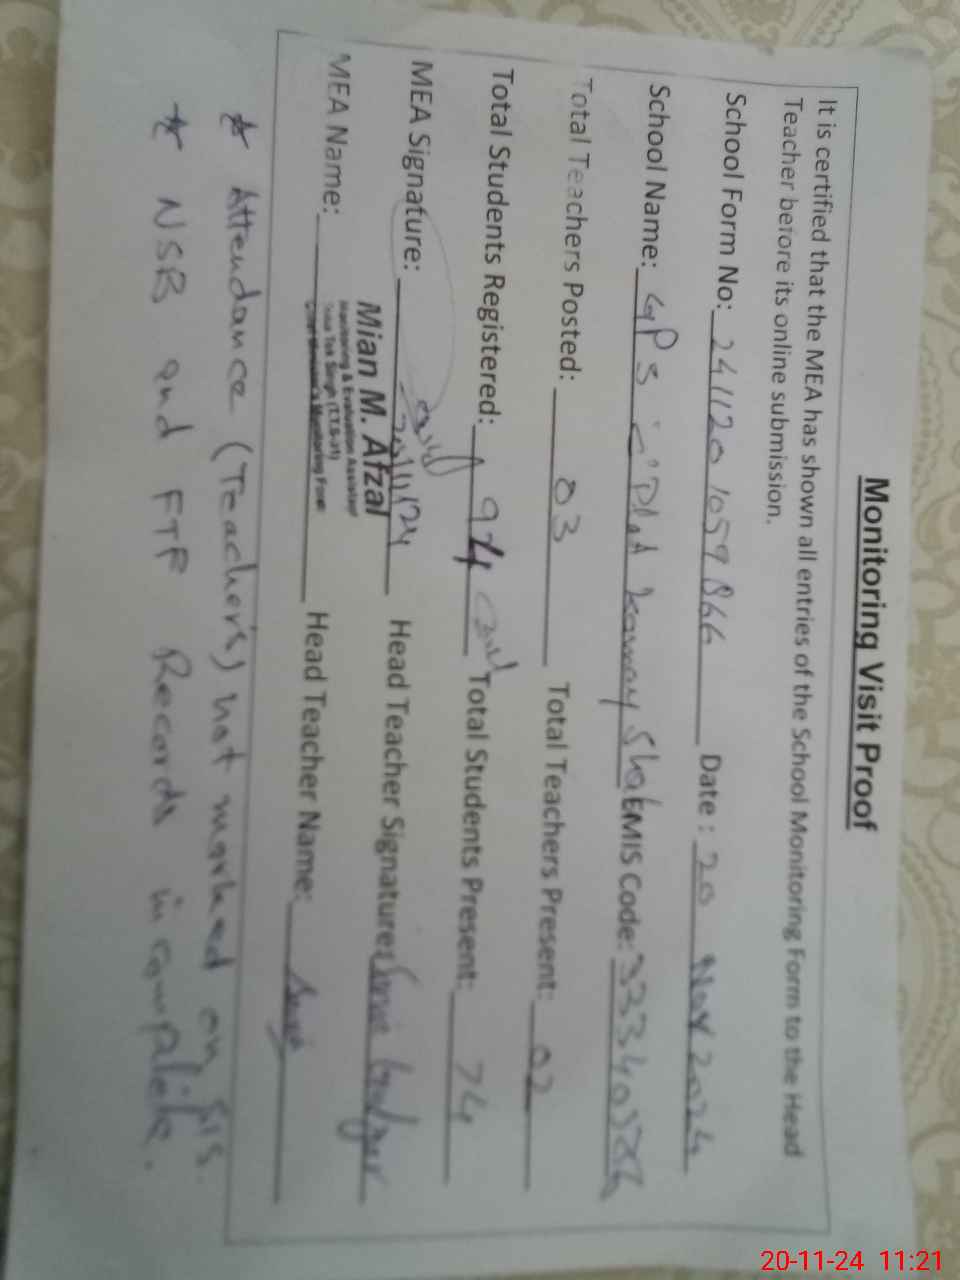 Monitoring Visit Proof
It is certified that the MEA has shown all entries of the School Monitoring Form to the Head
Teacher before its online submission.
School Form No: 2411201059866 Date : 20 Nov 2024
School Name: GPS EMIS Code:
Total Teachers Posted: 03 Total Teachers Present: 02
Total Students Registered: 94 Total Students Present: 74
MEA Signature: 20/11/24 Head Teacher Signature:
Mian M. Afzal
Monitoring & Evaluation Assistant
MEA Name: Head Teacher Name:
* Attendance (Teachers) not marked on SIS.
* NSB and FTF Records incomplete.
20-11-24 11:21